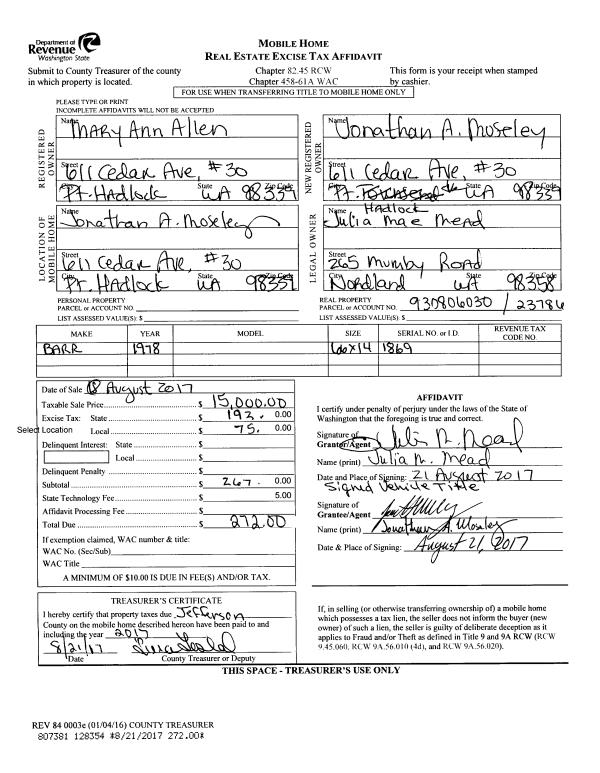 Department of
Revenue
Washington State
MOBILE HOME
REAL ESTATE EXCISE TAX AFFIDAVIT
Submit to County Treasurer of the county
in which property is located.
Chapter 82.45 RCW
Chapter 458-61A WAC
This form is your receipt when stamped
by cashier.
FOR USE WHEN TRANSFERRING TITLE TO MOBILE HOME ONLY
PLEASE TYPE OR PRINT
INCOMPLETE AFFIDAVITS WILL NOT BE ACCEPTED
REGISTERED OWNER
Name Mary Ann Allen
Street 611 Cedar Ave, #30
City Pt. Hadlock State WA Zip Code 98339
NEW REGISTERED OWNER
Name Jonathan A. Moseley
Street 611 Cedar Ave, #30
City Pt. Hadlock State WA Zip Code 98339
LOCATION OF MOBILE HOME
Name Jonathan A. Moseley
Street 611 Cedar Ave, #30
City Pt. Hadlock State WA Zip Code 98339
LEGAL OWNER
Name Julia Mae Mead
Street 265 Mumby Road
City Nordland State WA Zip Code 98358
PERSONAL PROPERTY
PARCEL or ACCOUNT NO.
LIST ASSESSED VALUE(S): $
REAL PROPERTY
PARCEL or ACCOUNT NO. 930806030 / 23786
LIST ASSESSED VALUE(S): $
MAKE YEAR MODEL SIZE SERIAL NO. or I.D. REVENUE TAX CODE NO.
BARR 1978 66x14 1869
Date of Sale 18 August 2017
Taxable Sale Price $ 15,000.00
Excise Tax: State $ 192. 0.00
Select Location Local $ 75. 0.00
Delinquent Interest: State $
Local $
Delinquent Penalty $
Subtotal $ 267. 0.00
State Technology Fee $ 5.00
Affidavit Processing Fee $
Total Due $ 272.00
If exemption claimed, WAC number & title:
WAC No. (Sec/Sub)
WAC Title
A MINIMUM OF $10.00 IS DUE IN FEE(S) AND/OR TAX.
AFFIDAVIT
I certify under penalty of perjury under the laws of the State of
Washington that the foregoing is true and correct.
Signature of
Grantor/Agent
Name (print) Julia M. Mead
Date and Place of Signing: 21 August 2017
Signed Vehicle Title
Signature of
Grantee/Agent
Name (print) Jonathan A. Moseley
Date & Place of Signing: August 21, 2017
TREASURER'S CERTIFICATE
I hereby certify that property taxes due Jefferson
County on the mobile home described hereon have been paid to and
including the year 2017
8/21/17
Date County Treasurer or Deputy
If, in selling (or otherwise transferring ownership of) a mobile home
which possesses a tax lien, the seller does not inform the buyer (new
owner) of such a lien, the seller is guilty of deliberate deception as it
applies to Fraud and/or Theft as defined in Title 9 and 9A RCW (RCW
9.45.060, RCW 9A.56.010 (4d), and RCW 9A.56.020).
THIS SPACE - TREASURER'S USE ONLY
REV 84 0003e (01/04/16) COUNTY TREASURER
807381 128354 *8/21/2017 272.00*